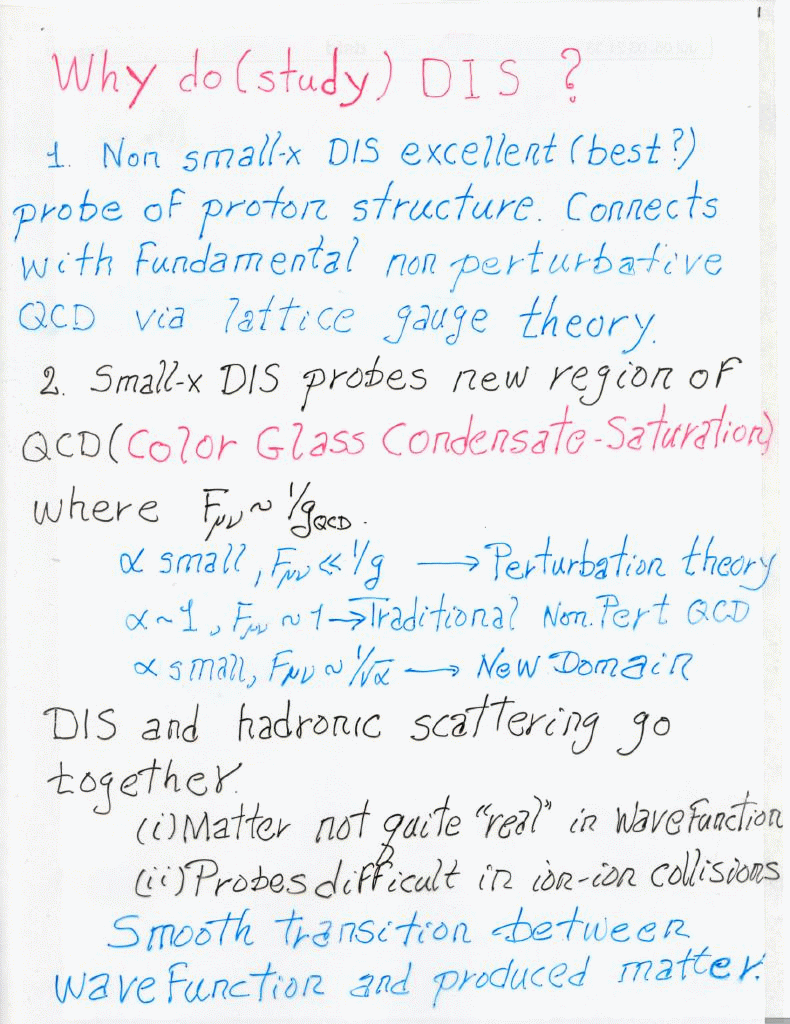 1
Why do (study) DIS ?
1. Non small-x DIS excellent (best?)
probe of proton structure. Connects
with fundamental non perturbative
QCD via lattice gauge theory.
2. Small-x DIS probes new region of
QCD (Color Glass Condensate-Saturation)
where Fμν ~ 1/gQCD.
α small, Fμν << 1/g → Perturbation theory
α ~ 1, Fμν ~ 1 → Traditional Non. Pert QCD
α small, Fμν ~ 1/√α → New Domain
DIS and hadronic scattering go
together.
(i) Matter not quite "real" in wavefunction
(ii) Probes difficult in ion-ion collisions
Smooth transition between
wavefunction and produced matter.